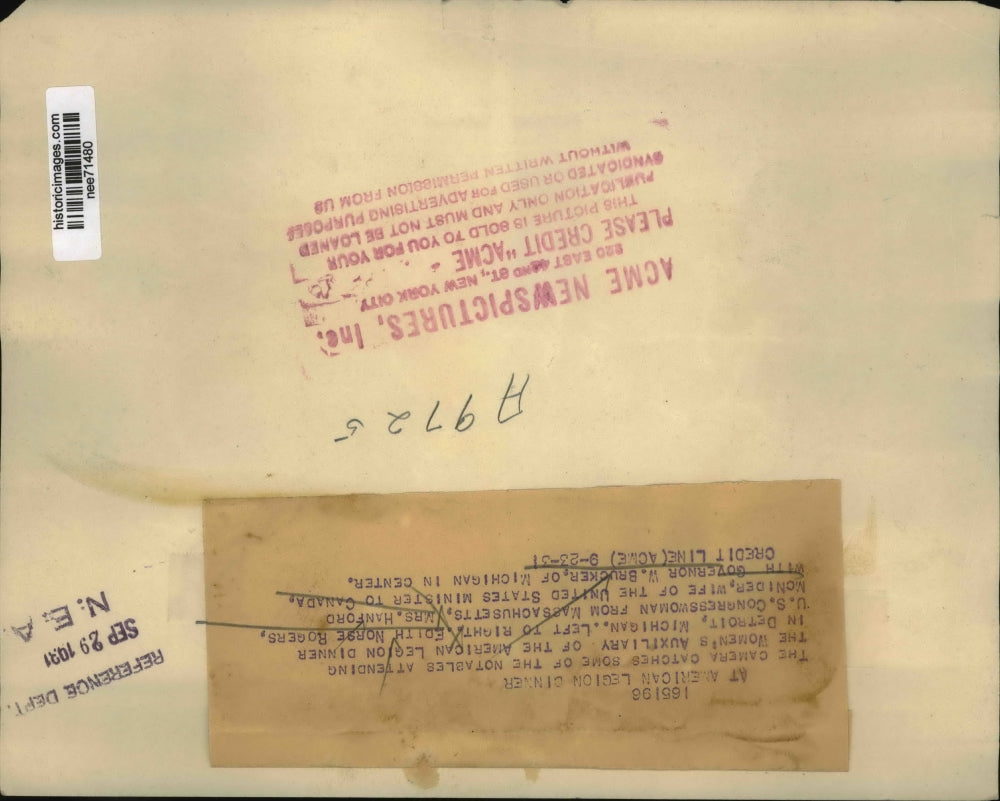 historicimages.com
nee71480
ACME NEWSPICTURES, Inc.
220 EAST 42ND ST., NEW YORK CITY
PLEASE CREDIT "ACME"
THIS PICTURE IS SOLD TO YOU FOR YOUR
PUBLICATION ONLY AND MUST NOT BE LOANED
SYNDICATED OR USED FOR ADVERTISING PURPOSES
WITHOUT WRITTEN PERMISSION FROM US
A9725
165196
AT AMERICAN LEGION DINNER
THE CAMERA CATCHES SOME OF THE NOTABLES ATTENDING
THE WOMEN'S AUXILIARY OF THE AMERICAN LEGION DINNER
IN DETROIT, MICHIGAN..LEFT TO RIGHT, EDITH NORSE ROGERS,
U.S. CONGRESSWOMAN FROM MASSACHUSETTS, MRS. HANFORD
MCNIDER, WIFE OF THE UNITED STATES MINISTER TO CANADA,
WITH GOVERNOR W. BRUCKER, OF MICHIGAN IN CENTER.
CREDIT LINE (ACME) 9-23-31
REFERENCE DEPT.
SEP 29 1931
N. E. A